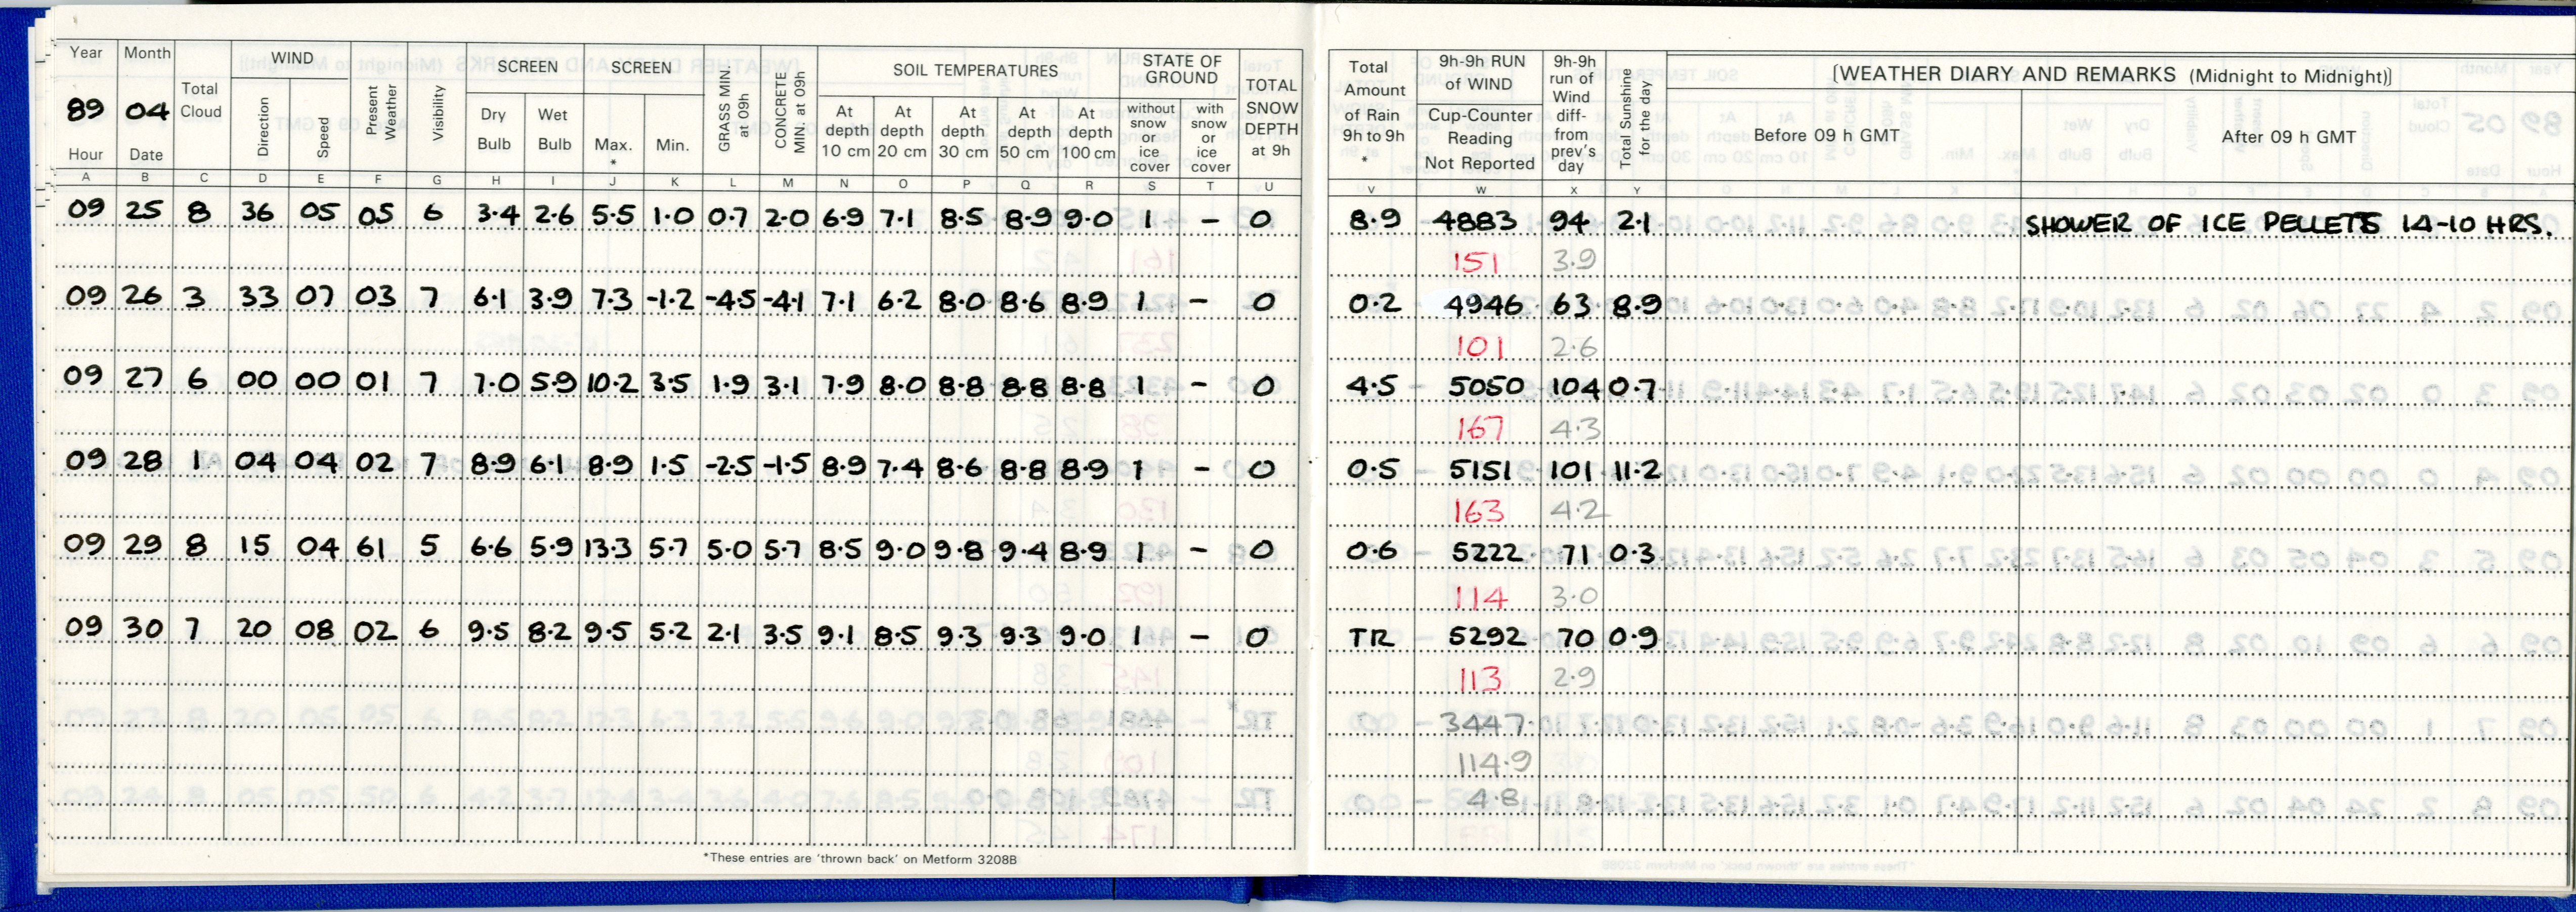 Year Month WIND SCREEN SCREEN SOIL TEMPERATURES STATE OF GROUND
89 04 Total Cloud Direction Speed Present Weather Visibility Dry Bulb Wet Bulb Max. * Min. GRASS MIN. at 09h CONCRETE MIN. at 09h At depth 10 cm At depth 20 cm At depth 30 cm At depth 50 cm At depth 100 cm without snow or ice cover with snow or ice cover TOTAL SNOW DEPTH at 9h
Hour Date
A B C D E F G H I J K L M N O P Q R S T U
09 25 8 36 05 05 6 3.4 2.6 5.5 1.0 0.7 2.0 6.9 7.1 8.5 8.9 9.0 1 – 0
09 26 3 33 07 03 7 6.1 3.9 7.3 -1.2 -4.5 -4.1 7.1 6.2 8.0 8.6 8.9 1 – 0
09 27 6 00 00 01 7 7.0 5.9 10.2 3.5 1.9 3.1 7.9 8.0 8.8 8.8 8.8 1 – 0
09 28 1 04 04 02 7 8.9 6.1 8.9 1.5 -2.5 -1.5 8.9 7.4 8.6 8.8 8.9 1 – 0
09 29 8 15 04 61 5 6.6 5.9 13.3 5.7 5.0 5.7 8.5 9.0 9.8 9.4 8.9 1 – 0
09 30 7 20 08 02 6 9.5 8.2 9.5 5.2 2.1 3.5 9.1 8.5 9.3 9.3 9.0 1 – 0
*These entries are 'thrown back' on Metform 3208B
Total Amount of Rain 9h to 9h * 9h-9h RUN of WIND Cup-Counter Reading Not Reported 9h-9h run of Wind diff- from prev's day Total Sunshine for the day [WEATHER DIARY AND REMARKS (Midnight to Midnight)]
Before 09 h GMT After 09 h GMT
V W X Y
8.9 4883 94 2.1 SHOWER OF ICE PELLETS 14-10 HRS.
151 3.9
0.2 4946 63 8.9
101 2.6
4.5 5050 104 0.7
167 4.3
0.5 5151 101 11.2
163 4.2
0.6 5222 71 0.3
114 3.0
TR 5292 70 0.9
113 2.9
3447
114.9
4.8